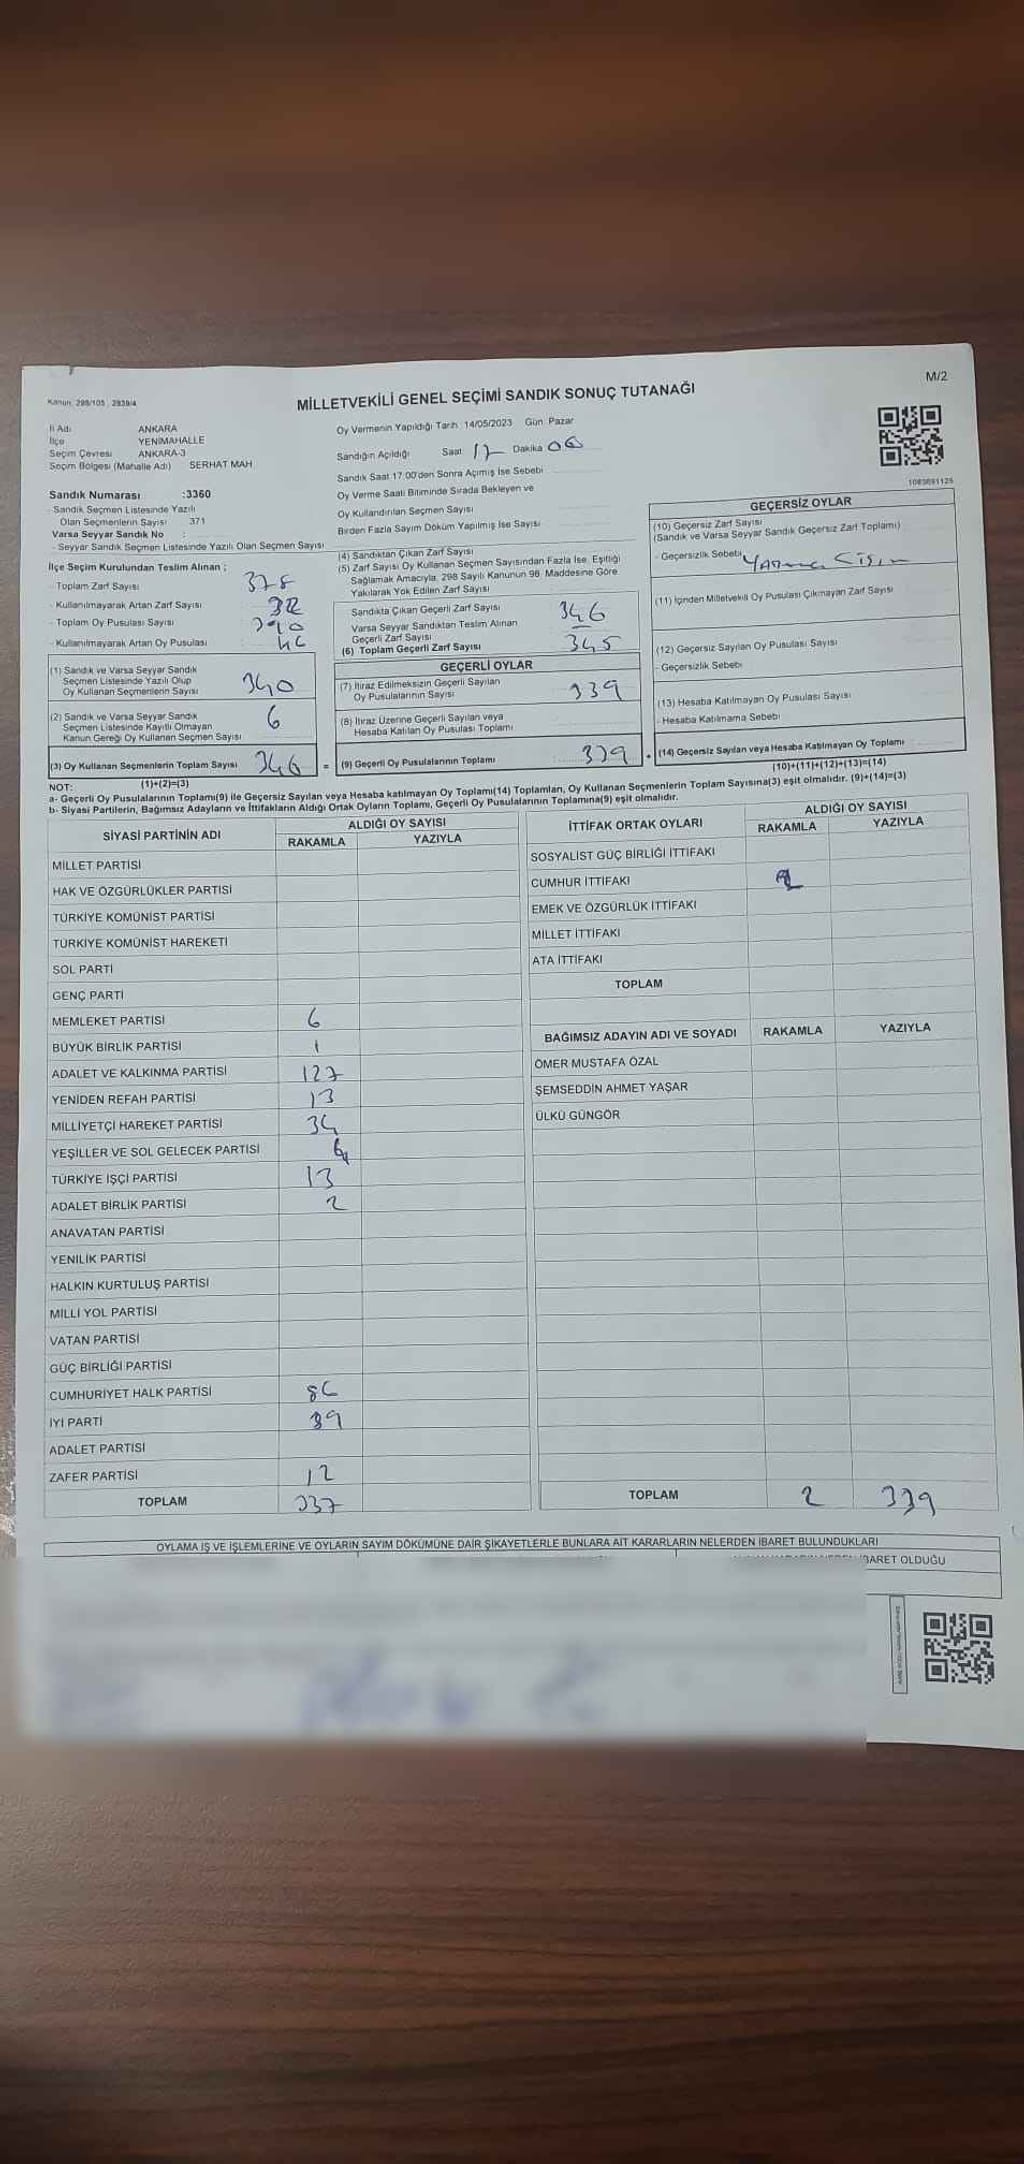 M/2
Kanun: 298/105, 2839/4
MİLLETVEKİLİ GENEL SEÇİMİ SANDIK SONUÇ TUTANAĞI
İl Adı ANKARA
İlçe YENİMAHALLE
Seçim Çevresi ANKARA-3
Seçim Bölgesi (Mahalle Adı) SERHAT MAH
Oy Vermenin Yapıldığı Tarih: 14/05/2023 Gün: Pazar
Sandığın Açıldığı Saat 17 Dakika 06
Sandık Saat 17:00'den Sonra Açımış İse Sebebi
Oy Verme Saati Bitiminde Sırada Bekleyen ve
Oy Kullandırılan Seçmen Sayısı
Birden Fazla Sayım Döküm Yapılmış İse Sayısı
1083691125
Sandık Numarası :3360
- Sandık Seçmen Listesinde Yazılı
Olan Seçmenlerin Sayısı 371
Varsa Seyyar Sandık No :
- Seyyar Sandık Seçmen Listesinde Yazılı Olan Seçmen Sayısı
İlçe Seçim Kurulundan Teslim Alınan ;
- Toplam Zarf Sayısı 378
- Kullanılmayarak Artan Zarf Sayısı 32
- Toplam Oy Pusulası Sayısı 390
- Kullanılmayarak Artan Oy Pusulası
(1) Sandık ve Varsa Seyyar Sandık
Seçmen Listesinde Yazılı Olup
Oy Kullanan Seçmenlerin Sayısı 340
(2) Sandık ve Varsa Seyyar Sandık
Seçmen Listesinde Kayıtlı Olmayan
Kanun Gereği Oy Kullanan Seçmen Sayısı 6
(3) Oy Kullanan Seçmenlerin Toplam Sayısı 346 =
(1)+(2)=(3)
(4) Sandıktan Çıkan Zarf Sayısı
(5) Zarf Sayısı Oy Kullanan Seçmen Sayısından Fazla İse, Eşitliği
Sağlamak Amacıyla, 298 Sayılı Kanunun 98. Maddesine Göre
Yakılarak Yok Edilen Zarf Sayısı
Sandıkta Çıkan Geçerli Zarf Sayısı 346
Varsa Seyyar Sandıktan Teslim Alınan
Geçerli Zarf Sayısı
(6) Toplam Geçerli Zarf Sayısı 345
GEÇERLİ OYLAR
(7) İtiraz Edilmeksizin Geçerli Sayılan
Oy Pusulalarının Sayısı 339
(8) İtiraz Üzerine Geçerli Sayılan veya
Hesaba Katılan Oy Pusulası Toplamı
(9) Geçerli Oy Pusulalarının Toplamı 339 +
GEÇERSİZ OYLAR
(10) Geçersiz Zarf Sayısı
(Sandık ve Varsa Seyyar Sandık Geçersiz Zarf Toplamı)
- Geçersizlik Sebebi
(11) İçinden Milletvekili Oy Pusulası Çıkmayan Zarf Sayısı
(12) Geçersiz Sayılan Oy Pusulası Sayısı
- Geçersizlik Sebebi
(13) Hesaba Katılmayan Oy Pusulası Sayısı
- Hesaba Katılmama Sebebi
(14) Geçersiz Sayılan veya Hesaba Katılmayan Oy Toplamı
(10)+(11)+(12)+(13)=(14)
NOT:
a- Geçerli Oy Pusulalarının Toplamı(9) ile Geçersiz Sayılan veya Hesaba katılmayan Oy Toplamı(14) Toplamları, Oy Kullanan Seçmenlerin Toplam Sayısına(3) eşit olmalıdır. (9)+(14)=(3)
b- Siyasi Partilerin, Bağımsız Adayların ve İttifakların Aldığı Ortak Oyların Toplamı, Geçerli Oy Pusulalarının Toplamına(9) eşit olmalıdır.
SİYASİ PARTİNİN ADI ALDIĞI OY SAYISI
RAKAMLA YAZIYLA
MİLLET PARTİSİ
HAK VE ÖZGÜRLÜKLER PARTİSİ
TÜRKİYE KOMÜNİST PARTİSİ
TÜRKİYE KOMÜNİST HAREKETİ
SOL PARTİ
GENÇ PARTİ
MEMLEKET PARTİSİ 6
BÜYÜK BİRLİK PARTİSİ 1
ADALET VE KALKINMA PARTİSİ 127
YENİDEN REFAH PARTİSİ 13
MİLLİYETÇİ HAREKET PARTİSİ 34
YEŞİLLER VE SOL GELECEK PARTİSİ
TÜRKİYE İŞÇİ PARTİSİ 13
ADALET BİRLİK PARTİSİ 2
ANAVATAN PARTİSİ
YENİLİK PARTİSİ
HALKIN KURTULUŞ PARTİSİ
MİLLİ YOL PARTİSİ
VATAN PARTİSİ
GÜÇ BİRLİĞİ PARTİSİ
CUMHURİYET HALK PARTİSİ 86
İYİ PARTİ 39
ADALET PARTİSİ
ZAFER PARTİSİ 12
TOPLAM 337
İTTİFAK ORTAK OYLARI ALDIĞI OY SAYISI
RAKAMLA YAZIYLA
SOSYALİST GÜÇ BİRLİĞİ İTTİFAKI
CUMHUR İTTİFAKI 2
EMEK VE ÖZGÜRLÜK İTTİFAKI
MİLLET İTTİFAKI
ATA İTTİFAKI
TOPLAM
BAĞIMSIZ ADAYIN ADI VE SOYADI RAKAMLA YAZIYLA
ÖMER MUSTAFA ÖZAL
ŞEMSEDDİN AHMET YAŞAR
ÜLKÜ GÜNGÖR
TOPLAM 2 339
OYLAMA İŞ VE İŞLEMLERİNE VE OYLARIN SAYIM DÖKÜMÜNE DAİR ŞİKAYETLERLE BUNLARA AİT KARARLARIN NELERDEN İBARET BULUNDUKLARI
İBARET OLDUĞU